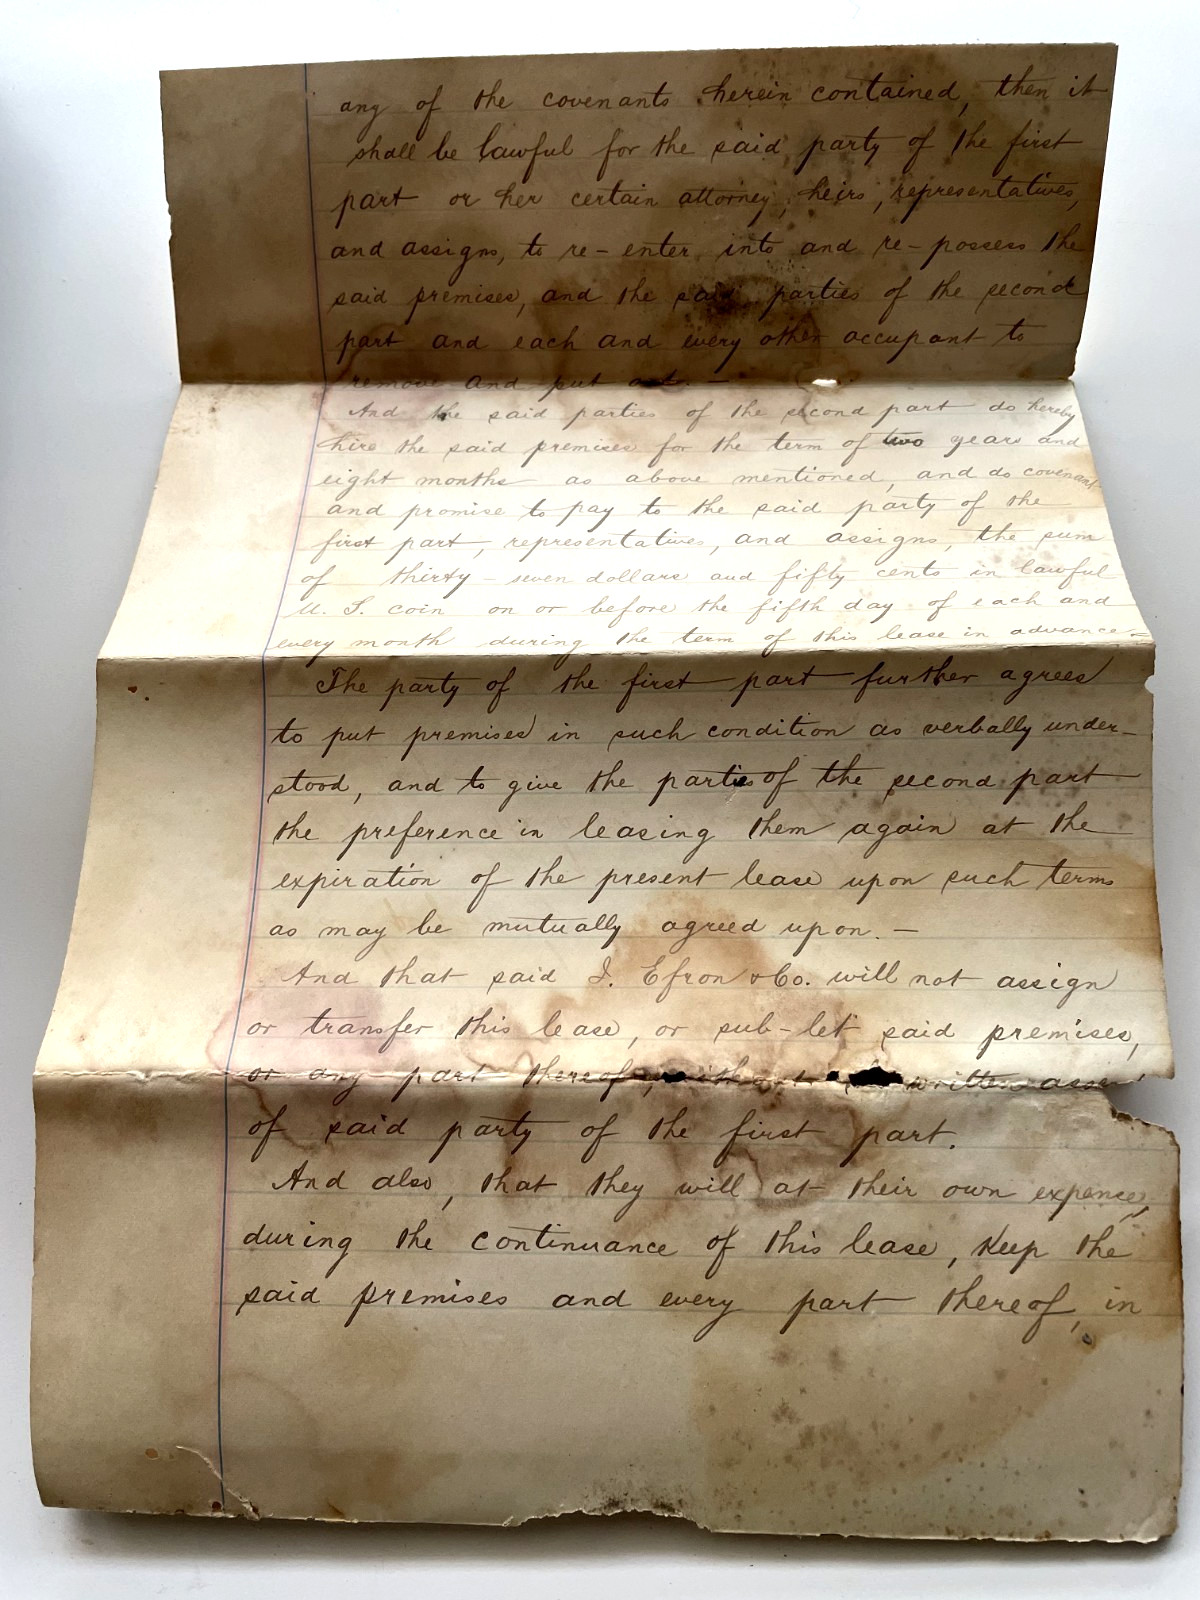 any of the covenants herein contained, then it
shall be lawful for the said party of the first
part or her certain attorney, heirs, representatives,
and assigns, to re-enter into and re-possess the
said premises, and the said parties of the second
part and each and every other occupant to
remove and put out. —
And the said parties of the second part do hereby
hire the said premises for the term of two years and
eight months as above mentioned, and do covenant
and promise to pay to the said party of the
first part, representatives, and assigns, the sum
of thirty-seven dollars and fifty cents in lawful
U. S. coin on or before the fifth day of each and
every month during the term of this lease in advance—
The party of the first part further agrees
to put premises in such condition as verbally under-
stood, and to give the parties of the second part
the preference in leasing them again at the
expiration of the present lease upon such terms
as may be mutually agreed upon. —
And that said I. Efron & Co. will not assign
or transfer this lease, or sub-let said premises,
or any part thereof, without written
of said party of the first part.
And also, that they will at their own expense,
during the continuance of this lease, keep the
said premises and every part thereof, in